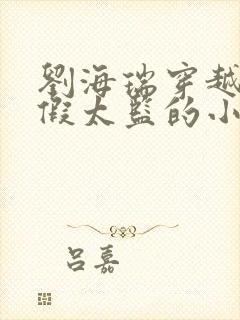 劉海瑞穿越
假太監的小
呂嘉